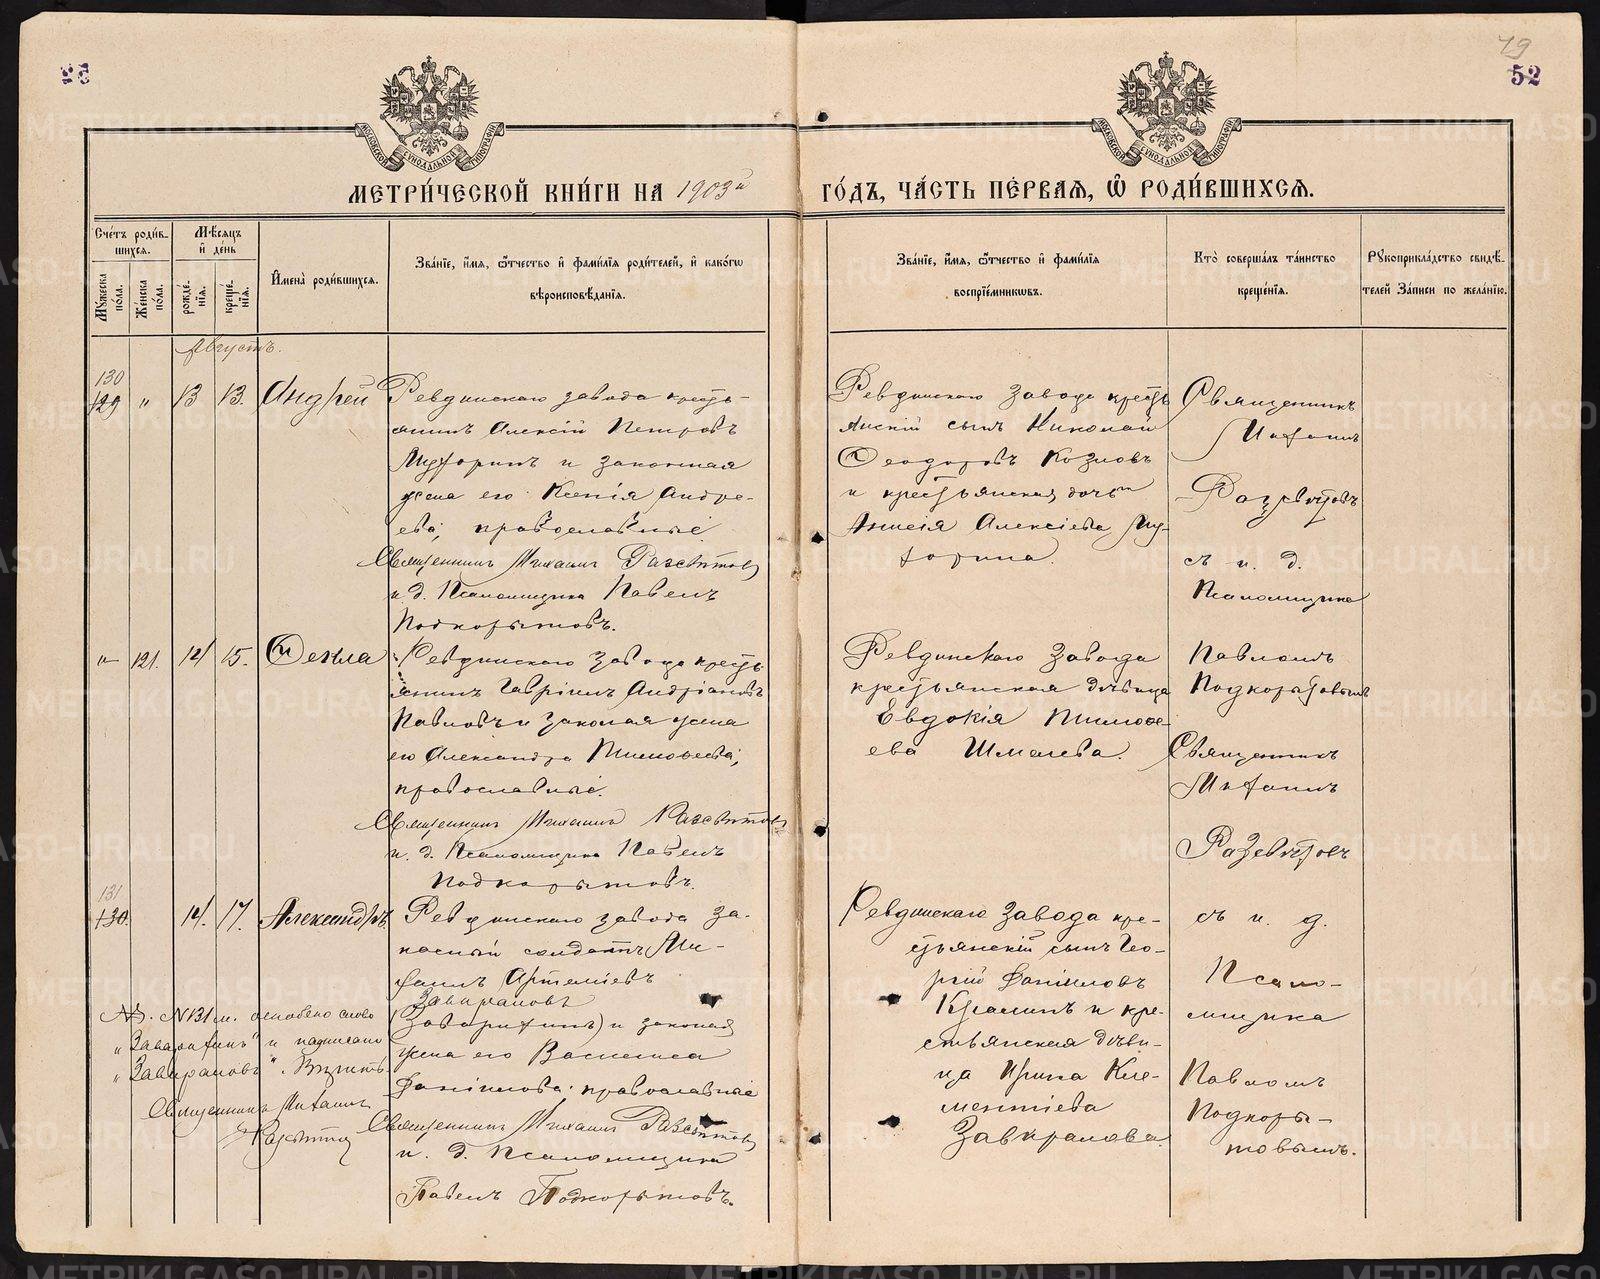 52
МЕТРИ́ЧЕСКОЙ КНИ́ГИ НА 1903й ГО́ДЪ, ЧА́СТЬ ПЕ́РВАЯ, Ѡ҆ РОДИ́ВШИХСЯ.
МОСКОВСКОЙ СУНОДАЛЬНОЙ ТИПОГРАФІИ
МОСКОВСКОЙ СУНОДАЛЬНОЙ ТИПОГРАФІИ
Сче́тъ роди́в-
шихся.
Мꙋ́жеска по́ла.
Же́нска по́ла.
Мѣ́сяцъ
и҆ де́нь
рожде́-
нїя.
креще́-
нїя.
И҆мена̀ роди́вшихся.
Зва́нїе, и҆́мя, ѻ҆́тчество и҆ фами́лїя роди́телей, и҆ како́гѡ
вѣроисповѣ́данїя.
Зва́нїе, и҆́мя, ѻ҆́тчество и҆ фами́лїя
воспрїе́мникѡвъ.
Кто̀ соверша́лъ та́инство
креще́нїя.
Рꙋкоприкла́дство свидѣ́-
телей за́писи по жела́нїю.
Августъ.
130
129 " 13 13. Андрей
Ревдинскаго завода кресть-
янинъ Алексій Петровъ
Мухоринъ и законная
жена его Ксенія Андре-
ева; православные.
Священникъ Михаилъ Разсвѣтовъ
и. д. Псаломщика Павелъ
Подкорытовъ.
Ревдинскаго завода кресть
янскій сынъ Николай
Ѳеодоровъ Козловъ
и крестьянская дочь
Анисія Алексіева Му-
хорина.
Священникъ
Михаилъ
Разсвѣтовъ
съ и. д.
Псаломщика
" 121. 14 15. Ѳекла
Ревдинскаго завода кресть
янинъ Гавріилъ Андріановъ
Павловъ и законая жена
его Александра Тимоѳеева;
православные.
Священникъ Михаилъ Разсвѣтовъ
и. д. Псаломщика Павелъ
Подкорытовъ.
Ревдинскаго завода
крестьянская дѣвица
Евдокія Тимоѳе
ева Шмалева.
Павломъ
Подкорытовымъ
Священникъ
Михаилъ
Разсвѣтовъ
131
130. 14. 17. Александръ.
Ревдинскаго завода за-
пасный солдатъ Ми-
хаилъ Артеміевъ
Завираловъ
(Заворихинъ) и законая
жена его Васлиса
Даніилова; православные
Священникъ Михаилъ Разсвѣтовъ
и. д. Псаломщика
Павелъ Подкорытовъ.
Ревдинскаго завода кре-
стьянскій сынъ Гео-
ргій Даніиловъ
и кре-
стьянская дѣви-
ца Ирина Кле-
ментіева
Завиралова.
съ и. д.
Псало-
мщика
Павломъ
Подкоры-
товымъ.
№ 131 м. слово
и надписано
"Завираловъ".
Священникъ Михаилъ
Разсвѣтовъ
METRIKI.GASO-URAL.RU